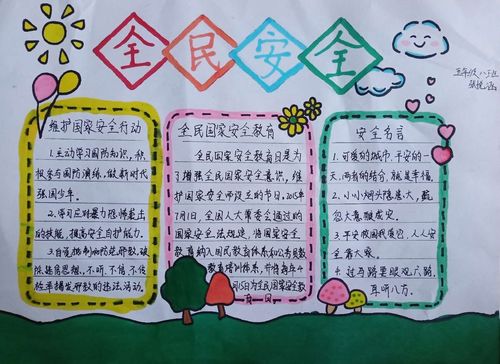 全民安全
五年级八班
维护国家安全行动
1.主动学习国防知识,积
极参与国防演练,做新时代
强国少年。
2.学习应对暴力恐怖袭击
的技能,提高安全自护能力。
3.自觉抵制
全民国家安全教育
全民国家安全教育日是为
了增强全民国家安全意识,维
护国家安全而设立的节日。2015年
7月1日,全国人大常委会通过的
国家安全法规定,将国家安全
教育纳入国民教育体系和公务员教
育培训体系,并将每年4
月15日为全民国家安全教
育日。
安全名言
1.可爱的城市,平安的一
天,两者的结合,就是幸福。
2.小小烟头隐患大,疏
忽大意酿成灾。
3.平安校园我爱它,人人安
全靠大家。
4.过马路要眼观六路,
耳听八方。